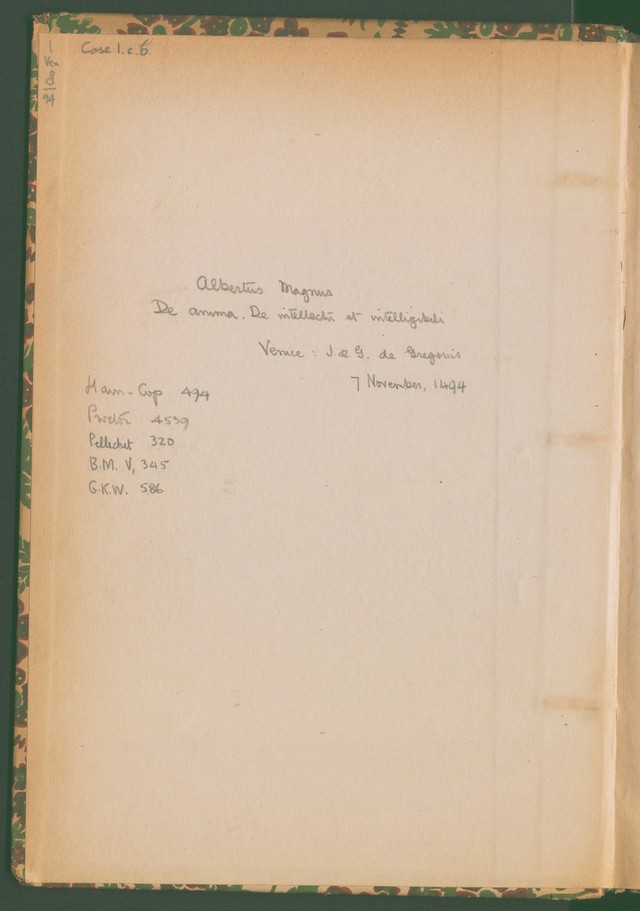 Case I.c.6.
Albertus Magnus
De anima. De intellectu et intelligibili
Venice: J. & G. de Gregoriis
7 November, 1494
Hain-Cop 494
Proctor 4539
Pellechet 320
B.M. V, 345
G.K.W. 586